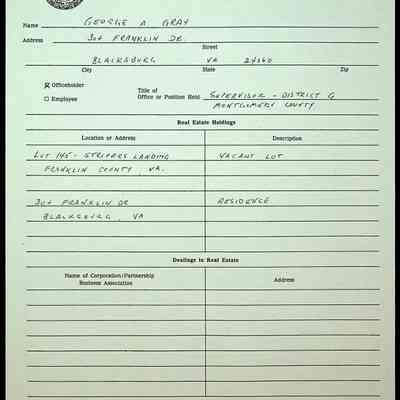 Name GEORGE A GRAY
Address 304 FRANKLIN DR.
Street
BLACKSBURG VA 24060
City State Zip
☒ Officeholder
☐ Employee
Title of
Office or Position Held SUPERVISOR - DISTRICT G
MONTGOMERY COUNTY
Real Estate Holdings
Location or Address Description
LOT 145 - STRIPERS LANDING VACANT LOT
FRANKLIN COUNTY, VA.
304 FRANKLIN DR RESIDENCE
BLACKSBURG, VA
Dealings in Real Estate
Name of Corporation/Partnership
Business Association
Address